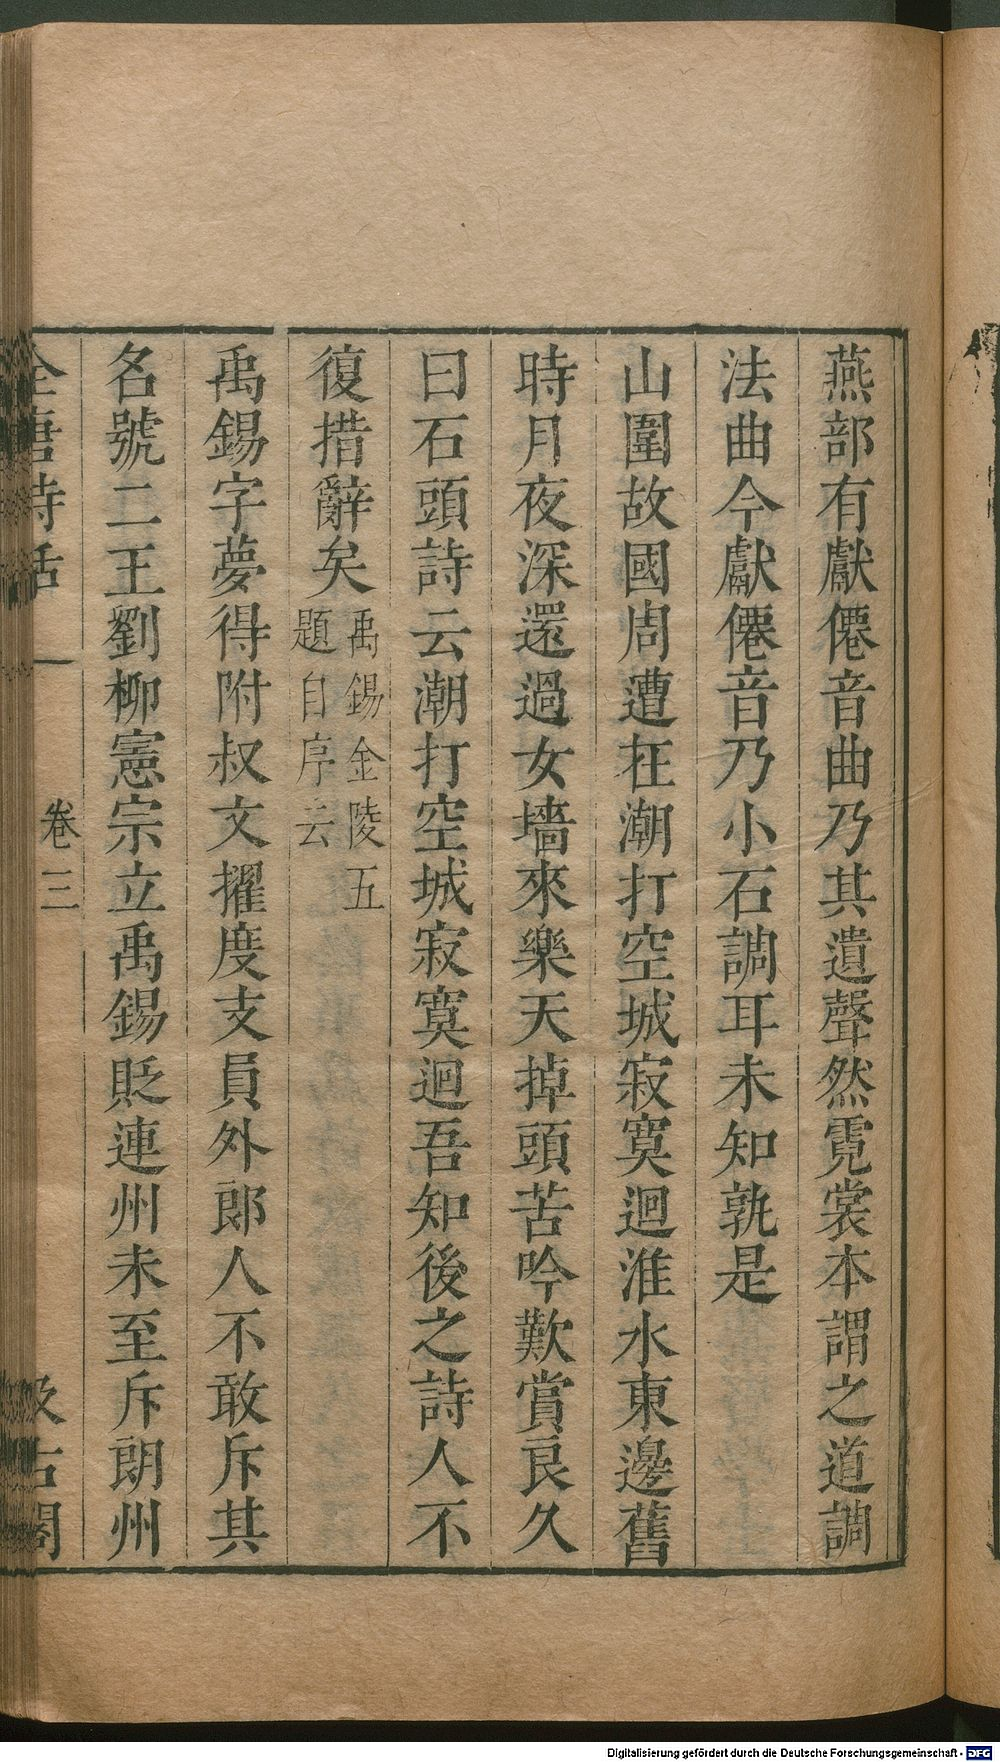 燕部有獻僊音曲乃其遺聲然霓裳本謂之道調
法曲今獻僊音乃小石調耳未知孰是
山圍故國周遭在潮打空城寂寞迴淮水東邊舊
時月夜深還過女墻來樂天掉頭苦吟歎賞良久
曰石頭詩云潮打空城寂寞迴吾知後之詩人不
復措辭矣禹錫金陵五
題自序云
禹錫字夢得附叔文擢度支員外郎人不敢斥其
名號二王劉柳憲宗立禹錫貶連州未至斥朗州
全唐詩話
卷三
汲古閣
Digitalisierung gefördert durch die Deutsche Forschungsgemeinschaft - DFG